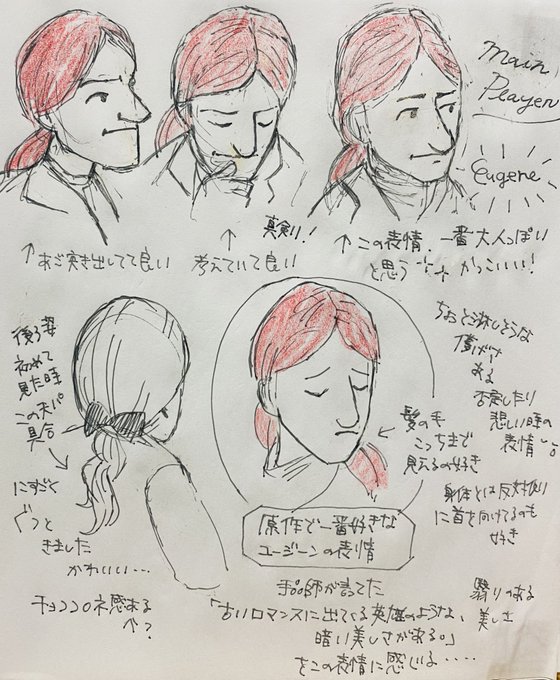 Main
Player
Eugene
↑あご突き出してて良い
真剣!
↑
考えていて良い
↑この表情、一番大人っぽい
と思う
かっこいい!
後ろ姿
初めて
見た時
この天パ
具合
にすごく
ぐっと
きました
かわいい…
チョココロネ感ある
↑?
髪の毛
こっちまで
見えるの好き
ちょっと淋しそうな
儚げさ
ある
否定したり
悲しい時の
表情
身体とは反対側
に首を向けてるのも
好き
原作で一番好きな
ユージーンの表情
手品師が言てた
「古いロマンスに出てくる英雄のような、
暗い美しさがある。」
をこの表情に感じる....
翳りのある
美しさ